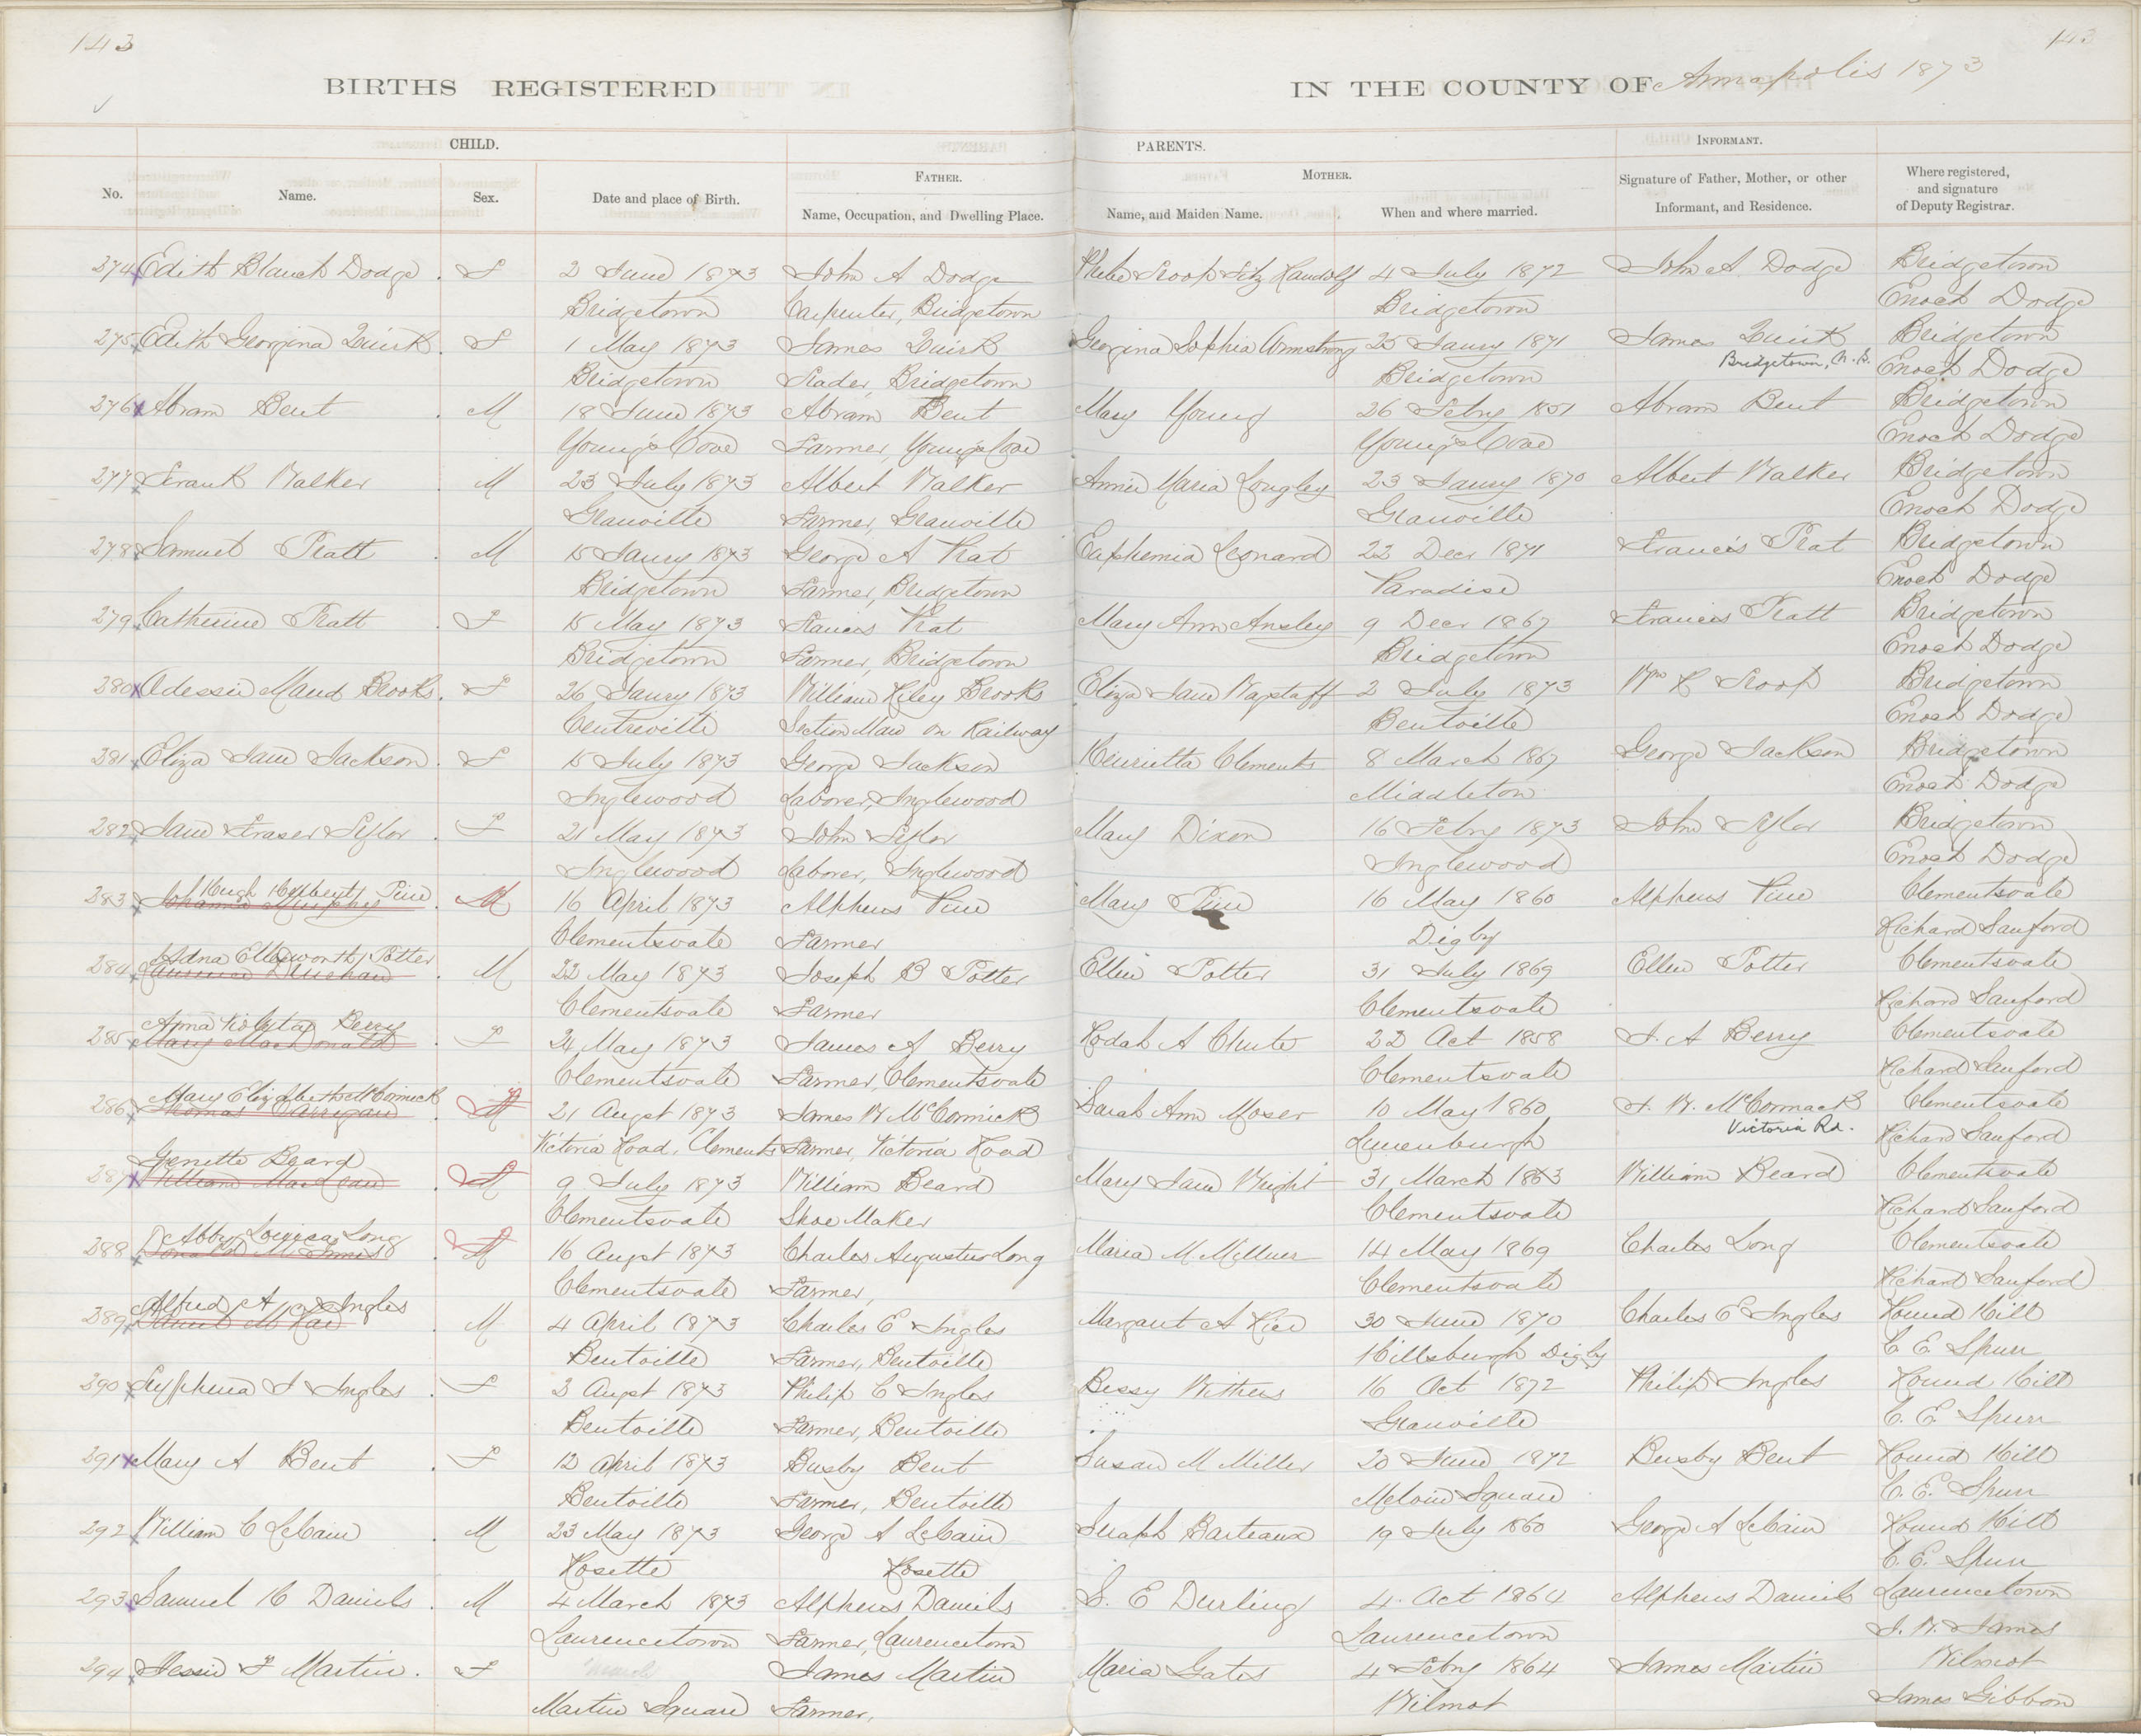 143
143
BIRTHS REGISTERED
IN THE COUNTY OF Annapolis 1873
CHILD.
PARENTS.
INFORMANT.
No.
Name.
Sex.
Date and place of Birth.
FATHER.
Name, Occupation, and Dwelling Place.
MOTHER.
Name, and Maiden Name.
When and where married.
Signature of Father, Mother, or other
Informant, and Residence.
Where registered,
and signature
of Deputy Registrar.
274 Edith Blanch Dodge F 2 June 1873 John A Dodge Phebe Troop Fitz Randolf 4 July 1872 John A Dodge Bridgetown
Bridgetown Carpenter, Bridgetown Bridgetown Enoch Dodge
275 Edith Georgina Quirk F 1 May 1873 James Quirk Georgina Sophia Armstrong 25 Janry 1871 James Quirk Bridgetown
Bridgetown Trader, Bridgetown Bridgetown Bridgetown, N.S. Enoch Dodge
276 Abram Bent M 18 June 1873 Abram Bent Mary Young 26 Febry 1851 Abram Bent Bridgetown
Youngs Cove Farmer, Youngs Cove Youngs Cove Enoch Dodge
277 Frank Walker M 23 July 1873 Albert Walker Annie Maria Longley 23 Janry 1870 Albert Walker Bridgetown
Granville Farmer, Granville Granville Enoch Dodge
278 Samuel Pratt M 15 Janry 1873 George A Prat Euphemia Leonard 22 Decr 1871 Francis Prat Bridgetown
Bridgetown Farmer, Bridgetown Paradise Enoch Dodge
279 Catherine Pratt F 15 May 1873 Francis Prat Mary Ann Ansley 9 Decr 1867 Francis Pratt Bridgetown
Bridgetown Farmer, Bridgetown Bridgetown Enoch Dodge
280 Adessie Maud Brooks F 26 Janry 1873 William Riley Brooks Eliza Jane Wagstaff 2 July 1873 Wm H Troop Bridgetown
Centreville Section Man on Railway Bentville Enoch Dodge
281 Eliza Jane Jackson F 15 July 1873 George Jackson Henrietta Clements 8 March 1867 George Jackson Bridgetown
Inglewood Laborer, Inglewood Middleton Enoch Dodge
282 Jane Fraser Syflor F 21 May 1873 John Syflor Mary Dixon 16 Febry 1873 John Syflor Bridgetown
Inglewood Laborer, Inglewood Inglewood Enoch Dodge
Hugh Halbert Pine
283 M 16 April 1873 Alpheus Pine Mary Pine 16 May 1860 Alpheus Pine Clementsvale
Clementsvale Farmer Digby Richard Sanford
Adna Ellsworth Potter
284 M 22 May 1873 Joseph B Potter Ellen Potter 31 July 1869 Ellen Potter Clementsvale
Clementsvale Farmer Clementsvale Richard Sanford
Anna Violetta Berry
285 Mary MacDonald F 24 May 1873 James A Berry Rodah A Chute 22 Oct 1858 J. A Berry Clementsvale
Clementsvale Farmer, Clementsvale Clementsvale Richard Sanford
Mary Elizabeth McCormick
286 Thomas F 21 Augst 1873 James W McCormick Sarah Ann Moser 10 May 1860 J. W. McCormack Clementsvale
Victoria Road, Clements Farmer, Victoria Road Lunenburgh Victoria Rd. Richard Sanford
Genette Beard
287 William MacLean F 9 July 1873 William Beard Mary Jane Wright 31 March 1863 William Beard Clementsvale
Clementsvale Shoe Maker Clementsvale Richard Sanford
Abby Louisa Long
288 Donald McInnis F 16 Augst 1873 Charles Augustus Long Maria M Milner 14 May 1869 Charles Long Clementsvale
Clementsvale Farmer, Clementsvale Richard Sanford
Alfred A Ingles
289 Daniel McKay M 4 April 1873 Charles E Ingles Margaret A Rice 30 June 1870 Charles E Ingles Round Hill
Bentville Farmer, Bentville Hillsburgh Digby C. E. Spurr
290 Syphena J Ingles F 2 Augst 1873 Philip C Ingles Bessy Withers 16 Oct 1872 Philip Ingles Round Hill
Bentville Farmer, Bentville Granville C. E. Spurr
291 Mary A Bent F 12 April 1873 Busby Bent Susan M Miller 20 June 1872 Busby Bent Round Hill
Bentville Farmer, Bentville Melvin Square C. E. Spurr
292 William C LeCain M 23 May 1873 George A LeCain Seraph Barteaux 19 July 1860 George A LeCain Round Hill
Rosette Rosette C. E. Spurr
293 Samuel H Daniels M 4 March 1873 Alpheus Daniels S. E Durling 4 Oct 1864 Alpheus Daniels Laurencetown
Laurencetown Farmer, Laurencetown Laurencetown J. W. James
294 Jessie F Martin F James Martin Maria Gates 4 Febry 1864 James Martin Wilmot
Martin Square Farmer, Wilmot James Gibbon